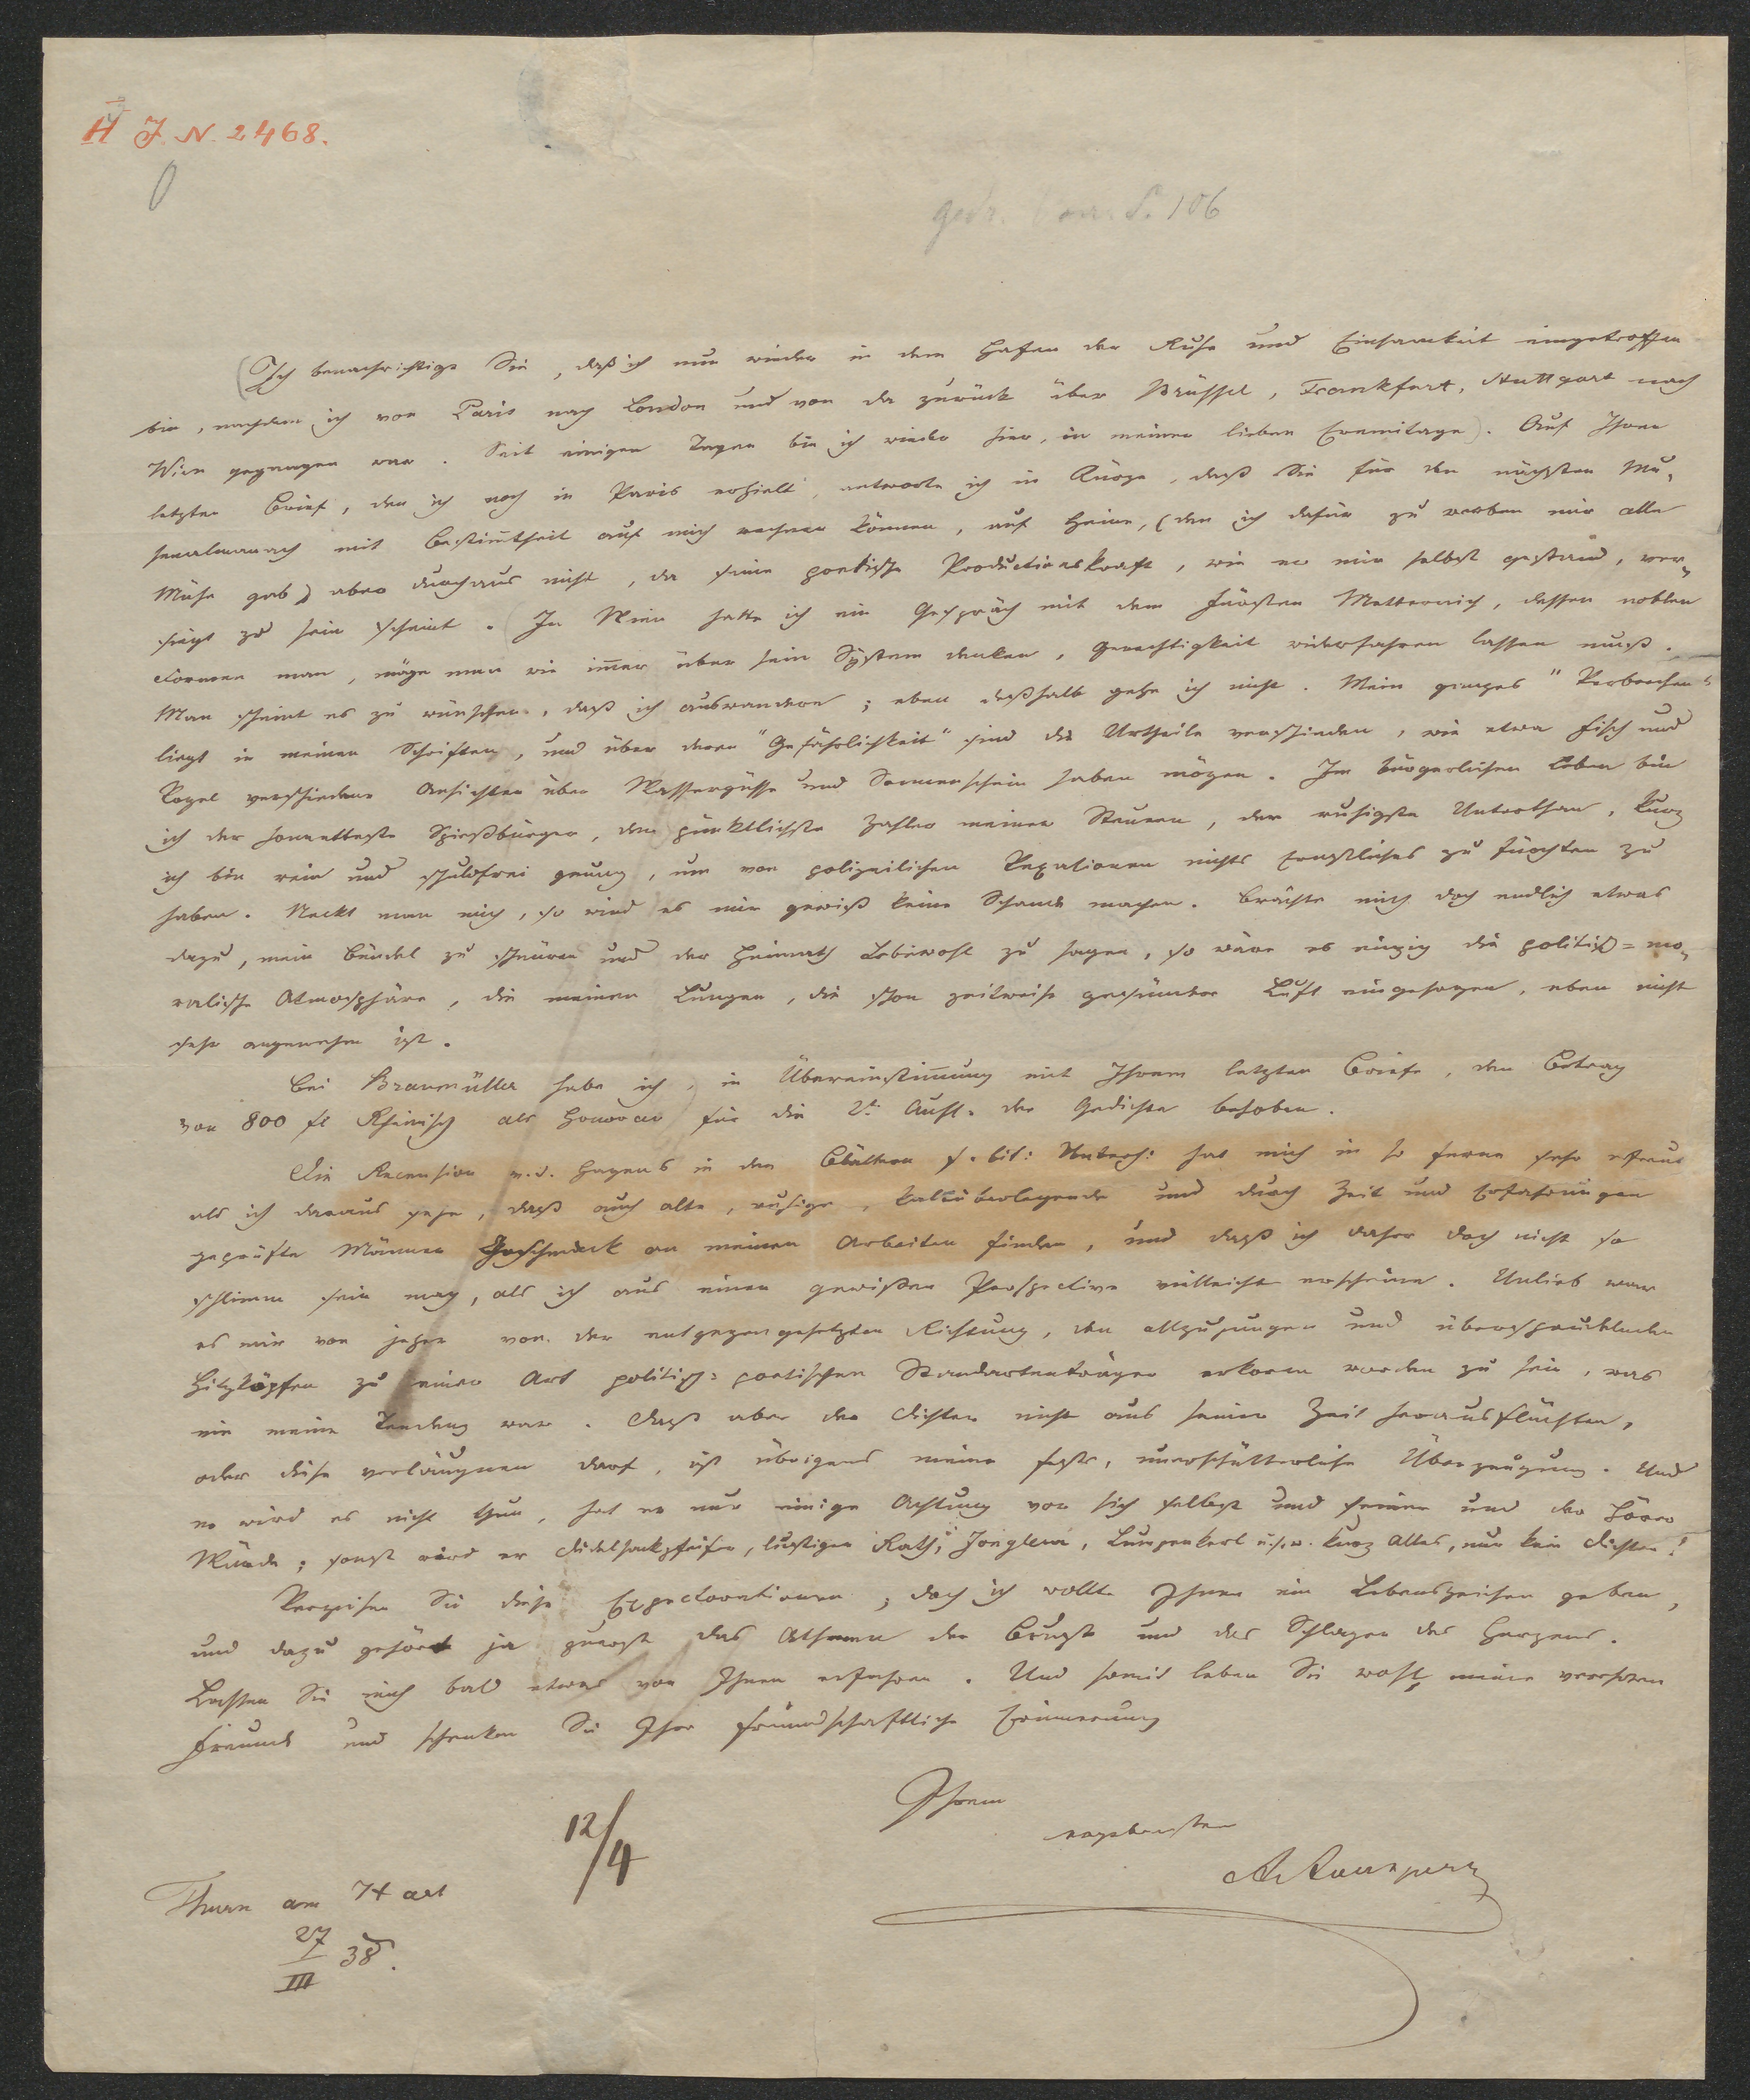 H J. N. 2468.
gedr. S. 106
(Ich benachrichtige Sie, daß ich nun wieder in dem Hafen der Ruhe und Einsamkeit eingetroffen
bin, nachdem ich von Paris nach London und von da zurück über Brüssel, Frankfurt, Stuttgart nach
Wien gegangen war. Seit einigen Tagen bin ich wieder hier, in meiner lieben Eremitage). Auf Ihren
letzten Brief, den ich noch in Paris erhielt, antworte ich in Kürze, daß Sie für den nächsten Mu-
senalmanach mit Bestimtheit auf mich rechnen können, auf Heine, (den ich dafür zu werben mir alle
Mühe gab) aber durchaus nicht, da seine poetische Productionskraft, wie er mir selbst gestand, ver-
siegt zu sein scheint. (In Wien hatte ich ein Gespräch mit dem Fürsten Metternich, dessen noblen
Formen man, möge man wie immer über sein System denken, Gerechtigkeit widerfahren lassen muß.
Man scheint es zu wünschen, daß ich auswandere; eben deßhalb gehe ich nicht. Mein ganzes "Verbrechen"
liegt in meinen Schriften, und über deren "Gefährlichkeit" sind die Urtheile verschieden, wie etwa Fisch und
Vogel verschiedene Ansichten über Wassergüsse und Sonnenschein haben mögen. Im bürgerlichen Leben bin
ich der honetteste Spießbürger, der pünktlichste Zahler meiner Steuern, der ruhigste Unterthan, kurz
ich bin rein und schuldfrei genug, um von polizeilichen Vexationen nichts Ernstliches zu fürchten zu
haben. Neckt man mich, so wird es mir gewiß keine Schande machen. Brächte mich doch endlich etwas
dazu, mein Bündel zu schnüren und der Heimath Lebewohl zu sagen, so wäre es einzig die politisch=mo-
ralische Atmosphäre, die meinen Lungen, die schon zeitweise gesündere Luft eingesogen, eben nicht
sehr angenehm ist.
Bei Braumüller habe ich, in Übereinstimmung mit Ihrem letzten Briefe, den Betrag
von 800 fl Rheinisch als Honorar für die 2te Aufl. der Gedichte behoben.
Die Recension v. d. Hagens in den Blättern f. lit: Unterh: hat mich in so ferne sehr erfreut
als ich daraus sehe, daß auch alte, ruhige, kaltüberlegende und durch Zeit und Erfahrungen
geprüfte Männer Geschmack an meinen Arbeiten finden, und daß ich daher doch nicht so
schlimm sein mag, als ich aus einer gewißen Perspective vielleicht erscheine. Unlieb war
es mir von jeher von der entgegengesetzten Richtung, den allzujungen und übersprudelnden
Hitzköpfen zu einer Art politisch-poetischen Standartenträger erkoren worden zu sein, was
nie meine Tendenz war. Daß aber der Dichter nicht aus seiner Zeit herausflüchten,
oder diese verläugnen darf, ist übrigens meine feste, unerschütterliche Überzeugung. Und
er wird es nicht thun, hat er nur einige Achtung vor sich selbst und seiner und der Hörer
Würde; sonst wird er Dudelsackpfeifer, lustiger Rath, Jongleur, Lumpenkerl u.s.w. kurz Alles, nur kein Dichter!
Verzeihen Sie diese Expectorationen; doch ich wollte Ihnen ein Lebenszeichen geben,
und dazu gehört ja zuerst das Athmen der Brust und das Schlagen des Herzens.
Lassen Sie mich bald etwas von Ihnen erfahren. Und somit leben Sie wohl, mein verehrter
Freund und schenken Sie Ihre freundschaftliche Erinnerung
Ihrem
ergebensten
A Auersperg
12/4
Thurn am Hart
27/III 38.